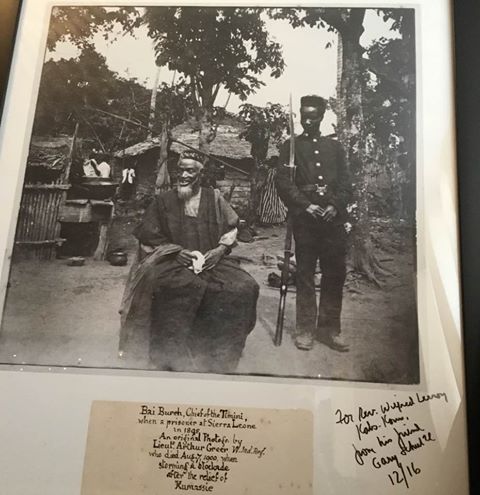 Bai Bureh, Chief of the Timini,
when a prisoner at Sierra Leone
in 1898
An original Photo'n by
Lieut. Arthur Greer W. Ind. Rgt.
who died Aug. 7, 1900, when
storming a blockade
after the relief of
Kumassie
For Rev. Wilfred
from his friend
Gary
12/16